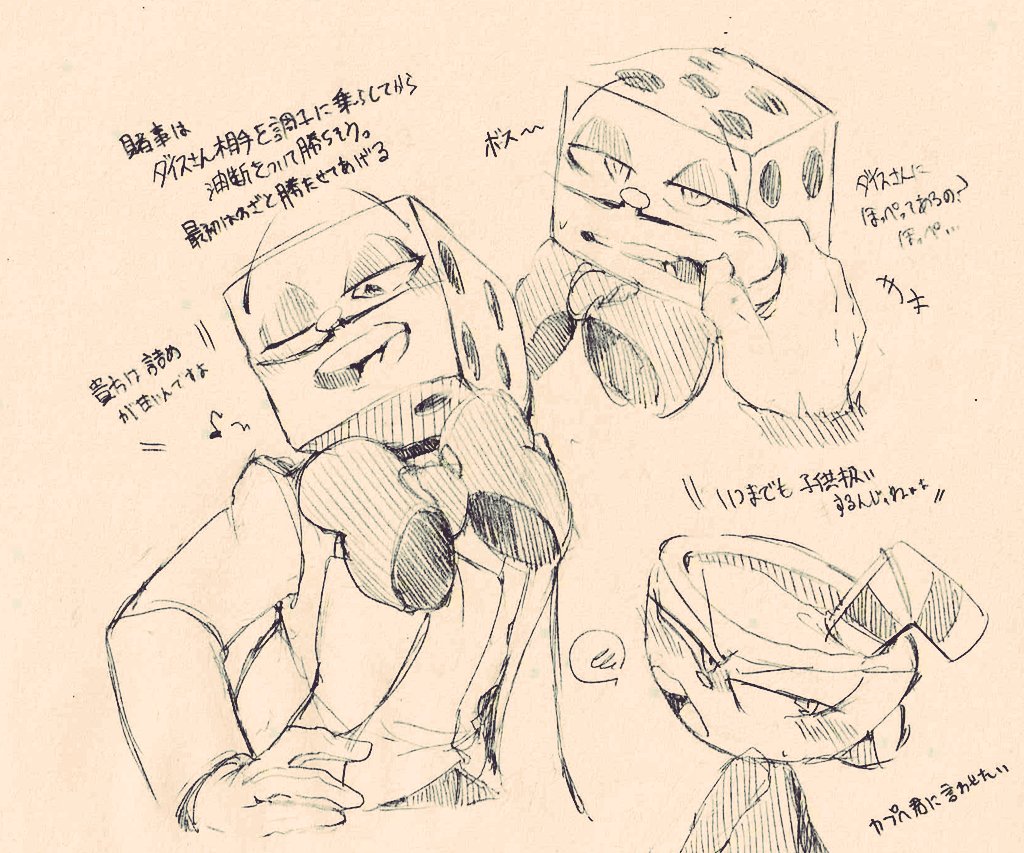 賭事は
ダイスさん相手を調子に乗らしてから
油断をついて勝ちそう。
最初はわざと勝たせてあげる
貴方は詰め
が甘いんですよ
ボス〜〜
ダイスさんに
ほっぺってあるの?
ほっぺ…
いつまでも子供扱い
するんじゃねぇよ
カプヘ君に言わせたい